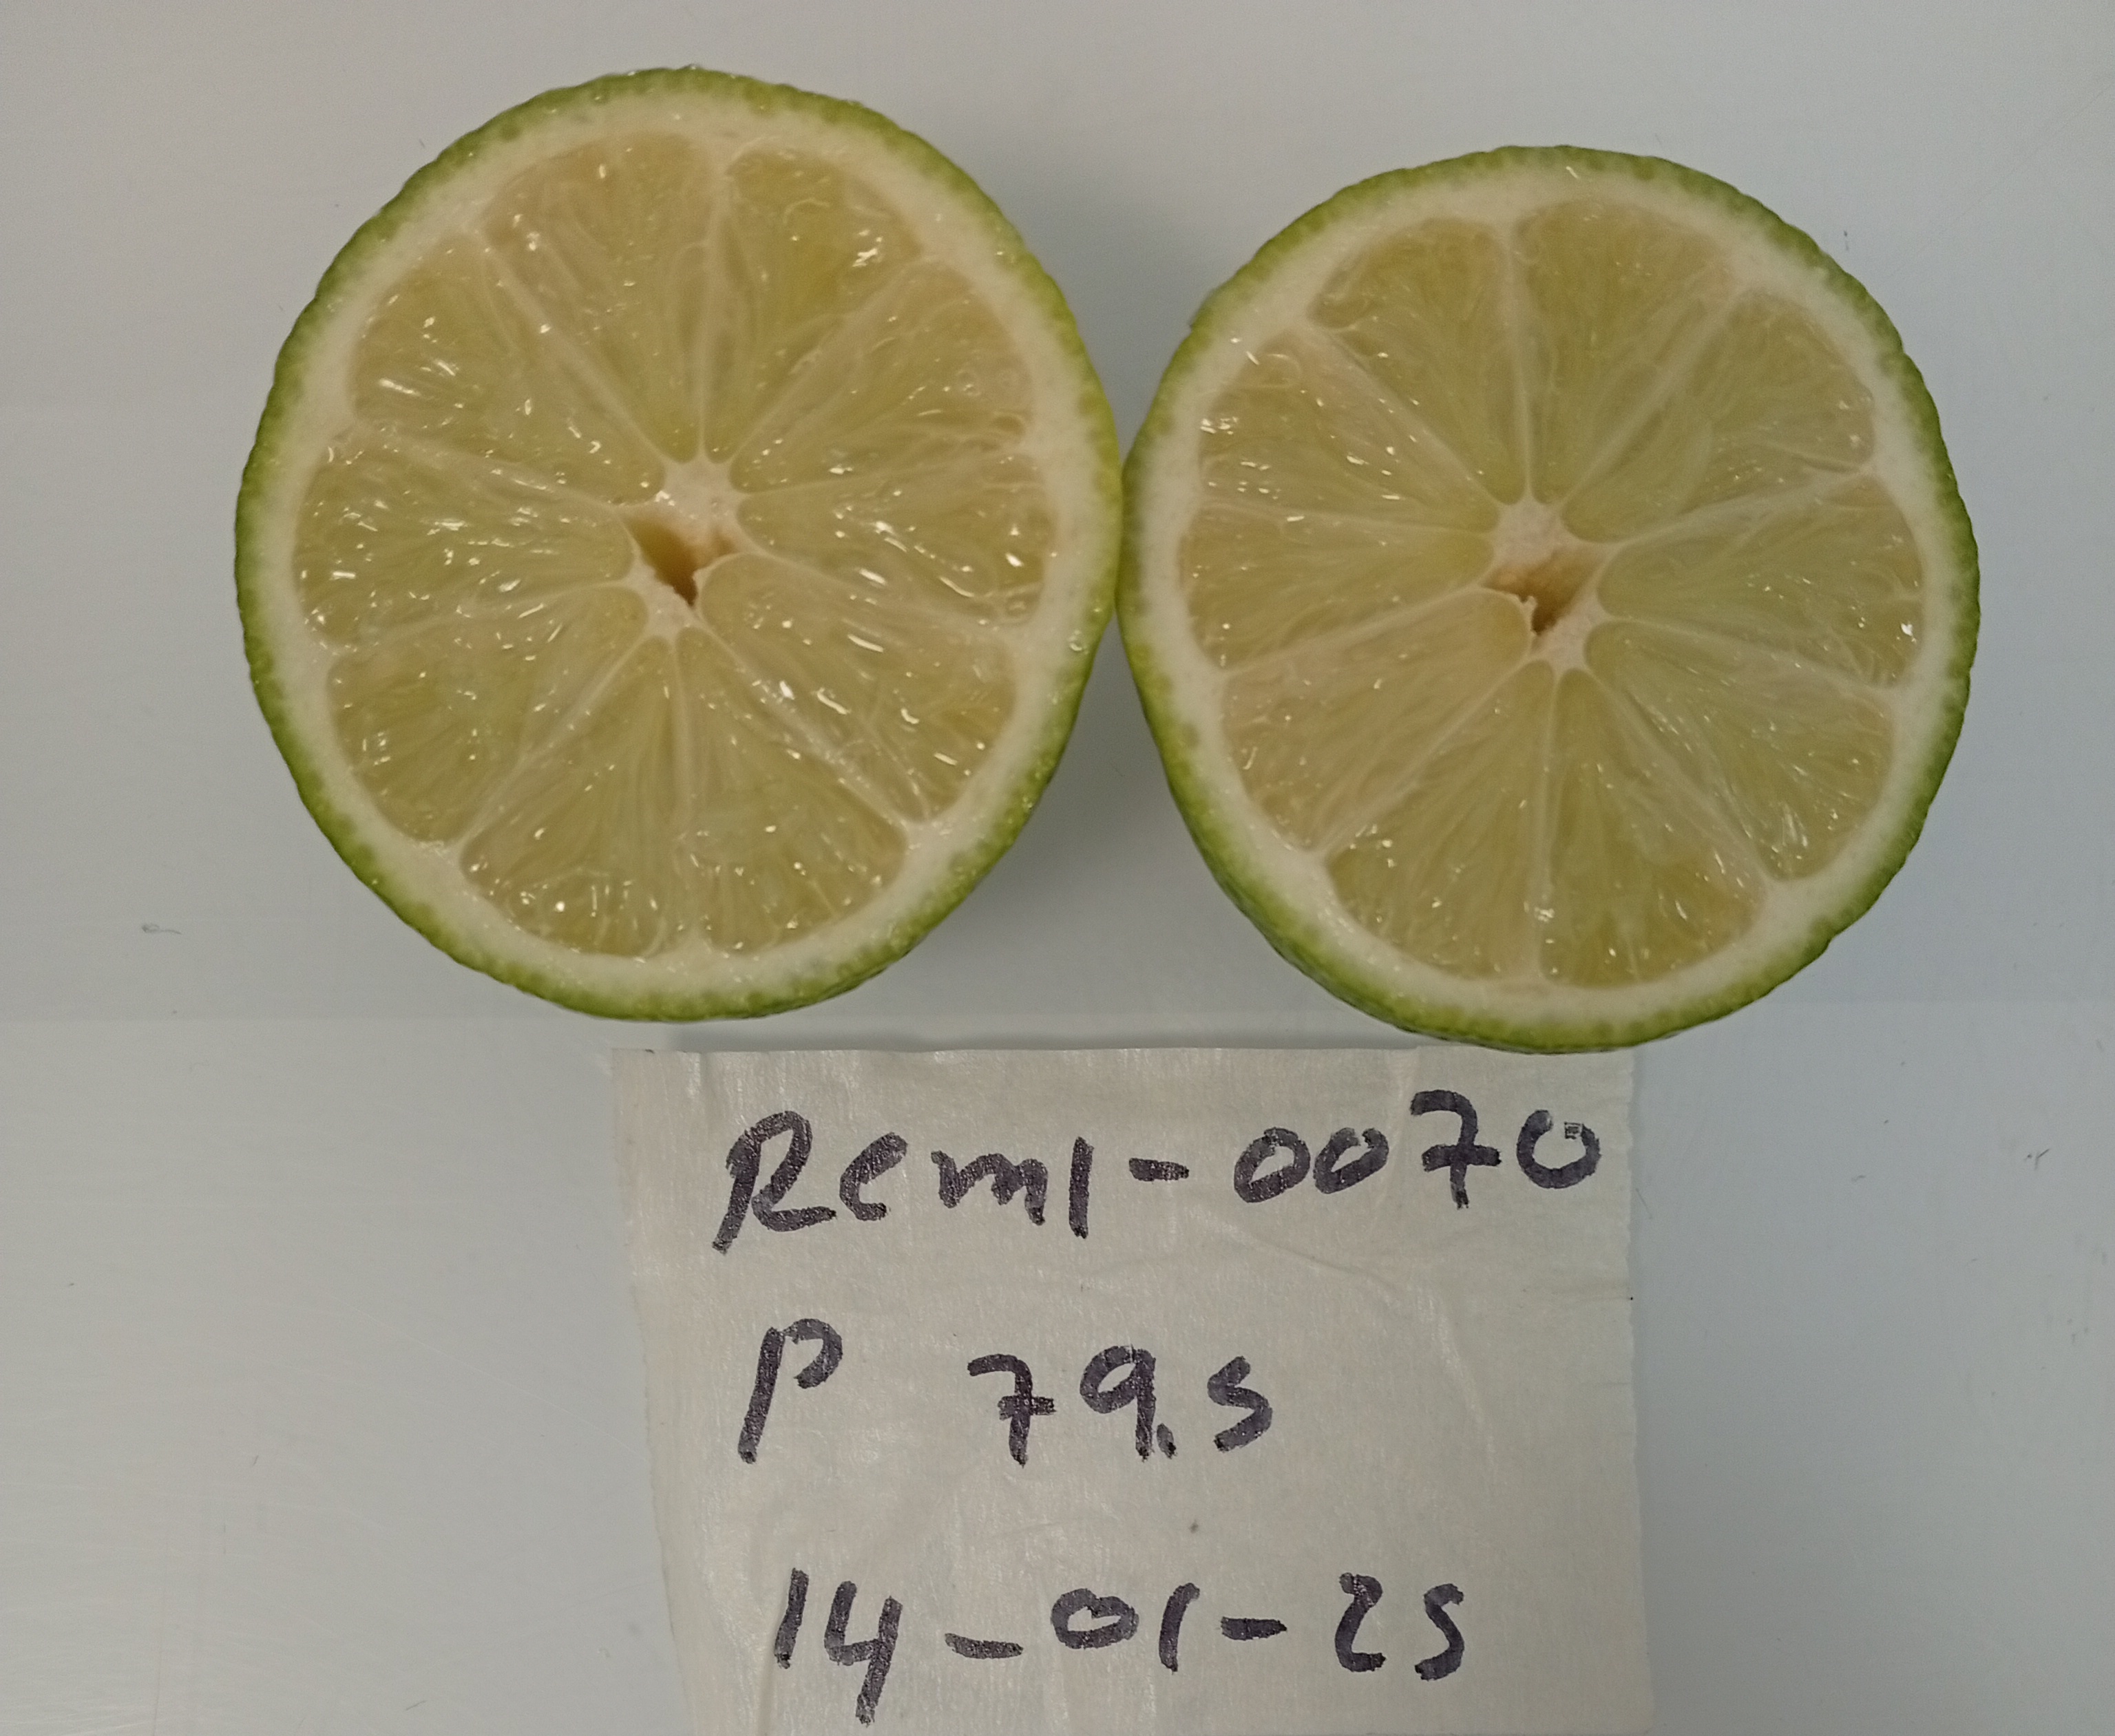 RCM1-0070
P 79.5
14-01-25